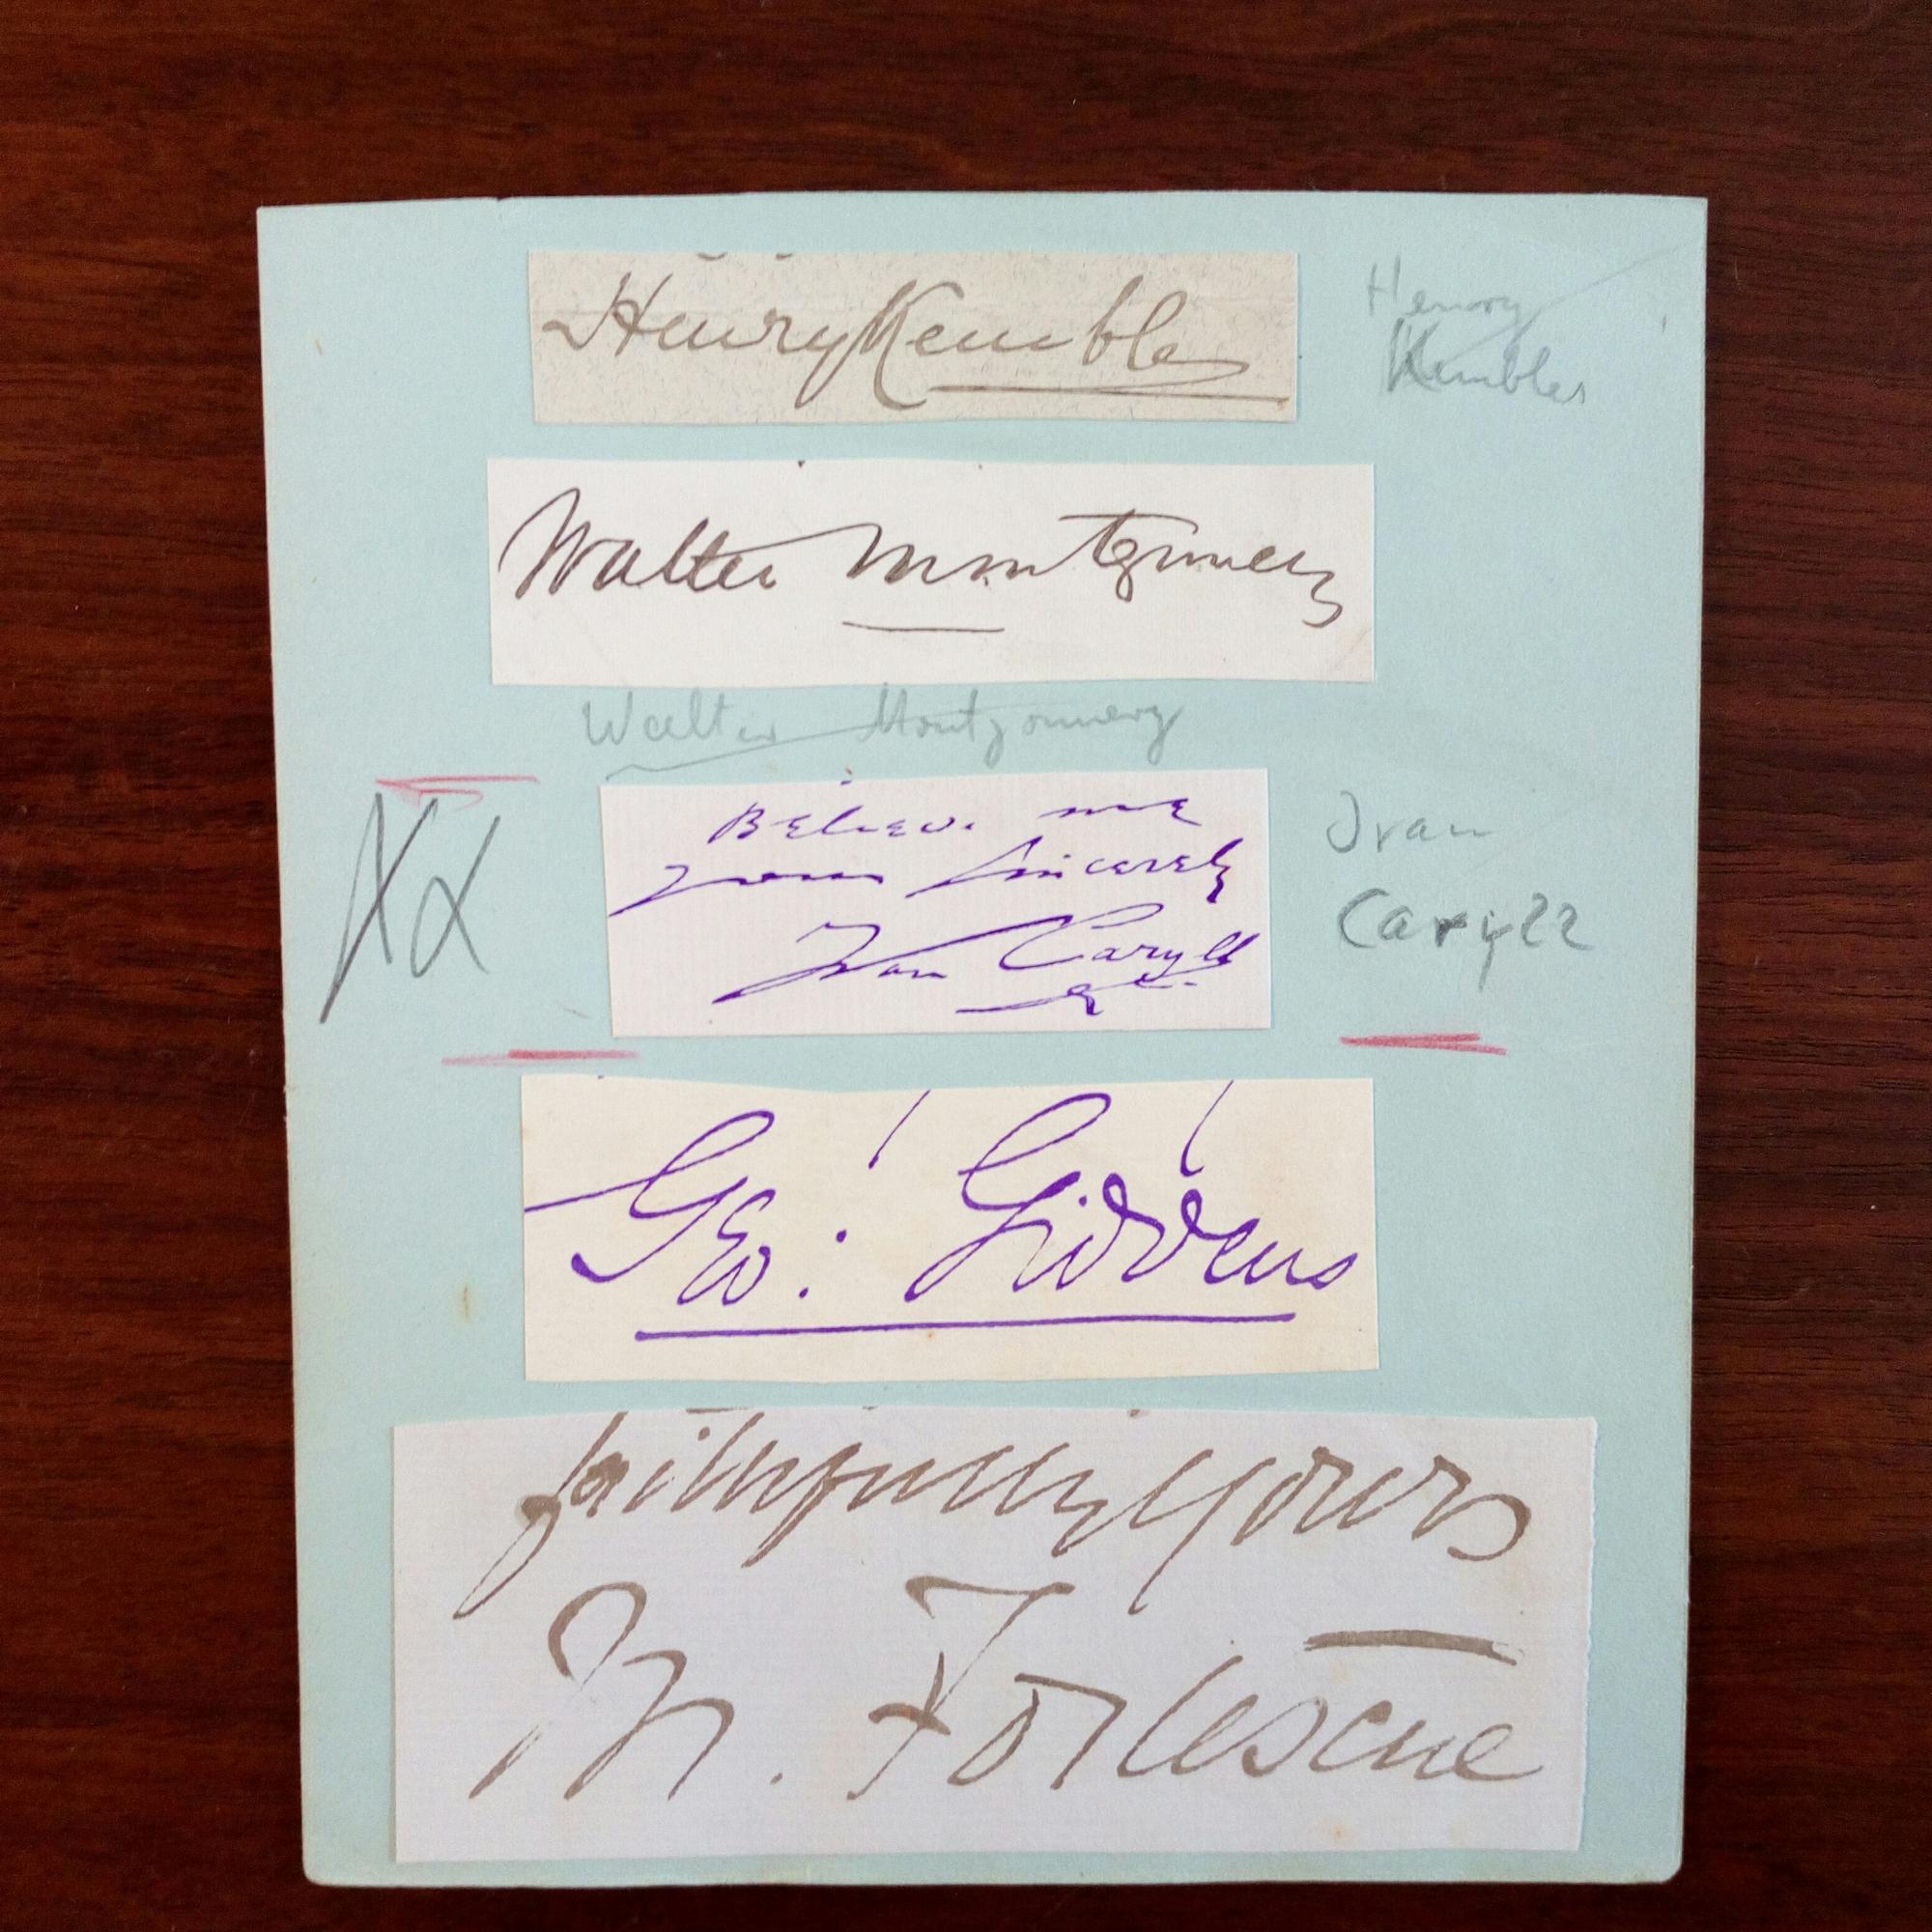 Henry Kemble
Henry
Kemble
Walter Montgomery
Walter Montgomery
Believe me
yours sincerely
Ivan Caryll
XX
Ivan
Caryll
Geo: Giddens
faithfully yours
M. Fortescue